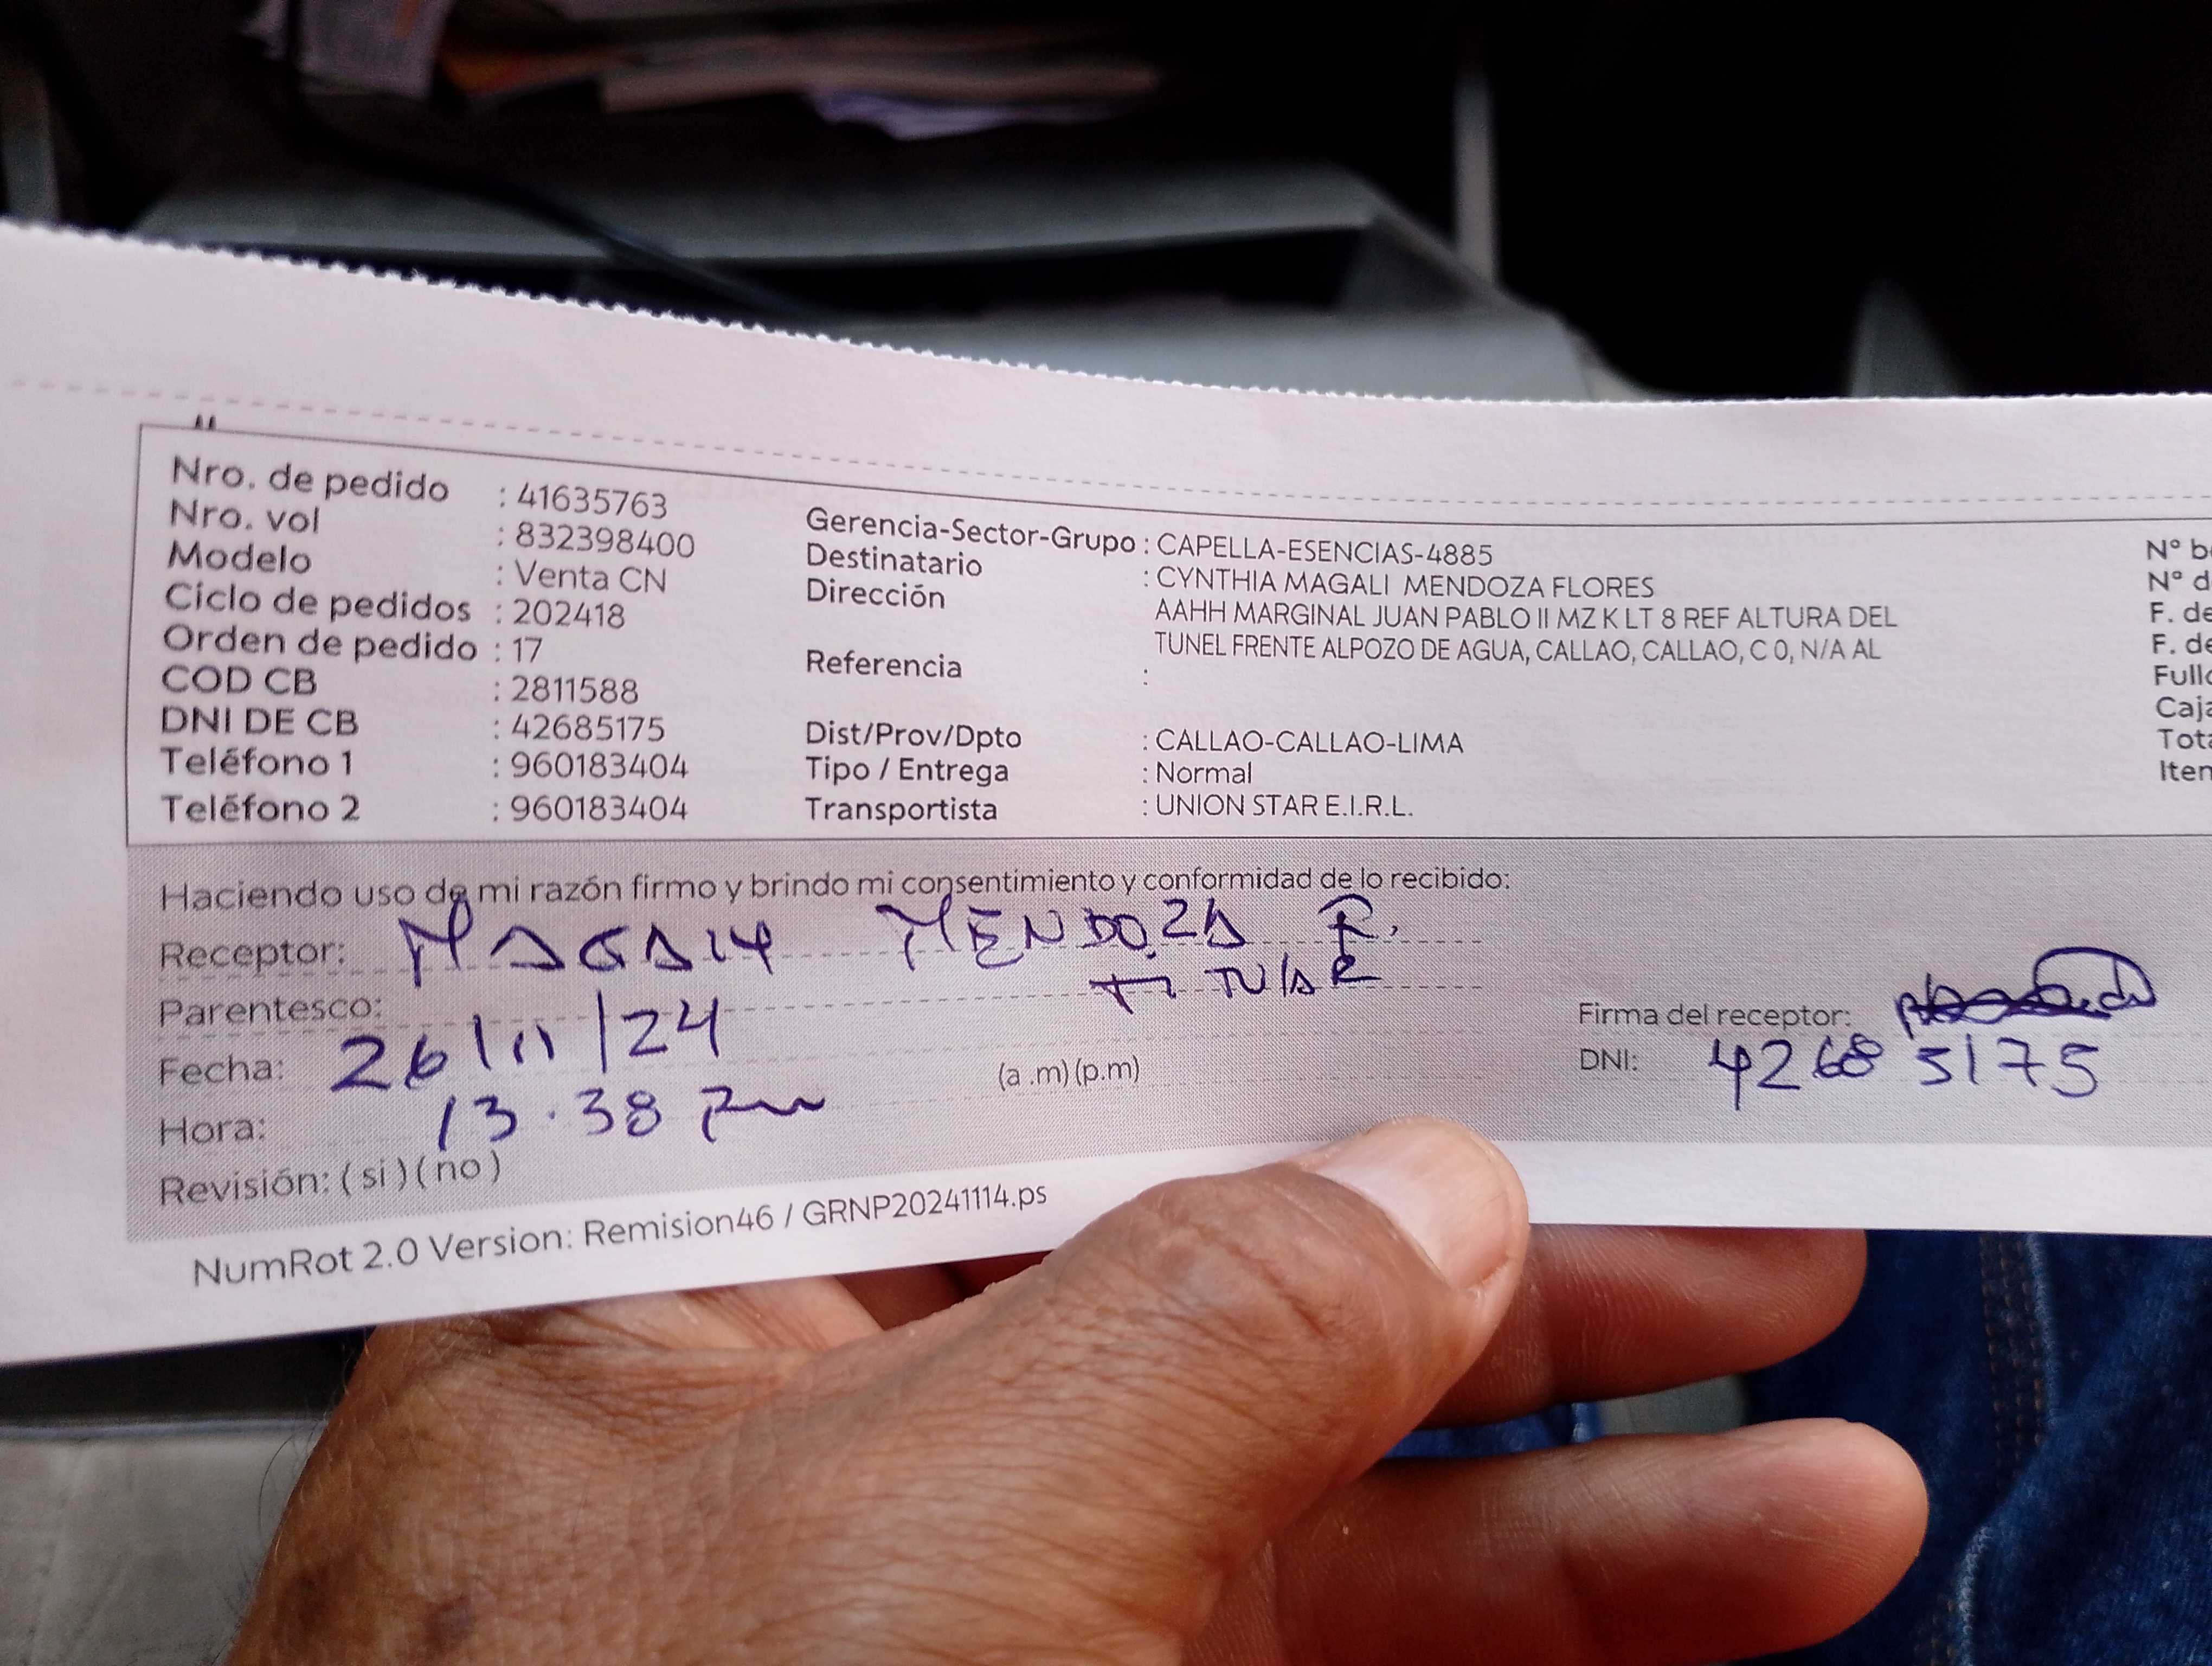 Nro. de pedido : 41635763
Nro. vol : 832398400
Modelo : Venta CN
Ciclo de pedidos : 202418
Orden de pedido : 17
COD CB : 2811588
DNI DE CB : 42685175
Teléfono 1 : 960183404
Teléfono 2 : 960183404
Gerencia-Sector-Grupo : CAPELLA-ESENCIAS-4885
Destinatario : CYNTHIA MAGALI MENDOZA FLORES
Dirección AAHH MARGINAL JUAN PABLO II MZ K LT 8 REF ALTURA DEL
TUNEL FRENTE ALPOZO DE AGUA, CALLAO, CALLAO, C 0, N/A AL
Referencia :
Dist/Prov/Dpto : CALLAO-CALLAO-LIMA
Tipo / Entrega : Normal
Transportista : UNION STAR E.I.R.L.
N° b
N° d
F. de
F. de
Full
Caj
Tot
Iten
Haciendo uso de mi razón firmo y brindo mi consentimiento y conformidad de lo recibido:
Receptor: MAGALY MENDOZA R.
Parentesco: TITULAR
Fecha: 26/11/24
Hora: 13.38 pm (a .m) (p.m)
Revisión: ( si ) ( no )
Firma del receptor:
DNI: 42685175
NumRot 2.0 Version: Remision46 / GRNP20241114.ps